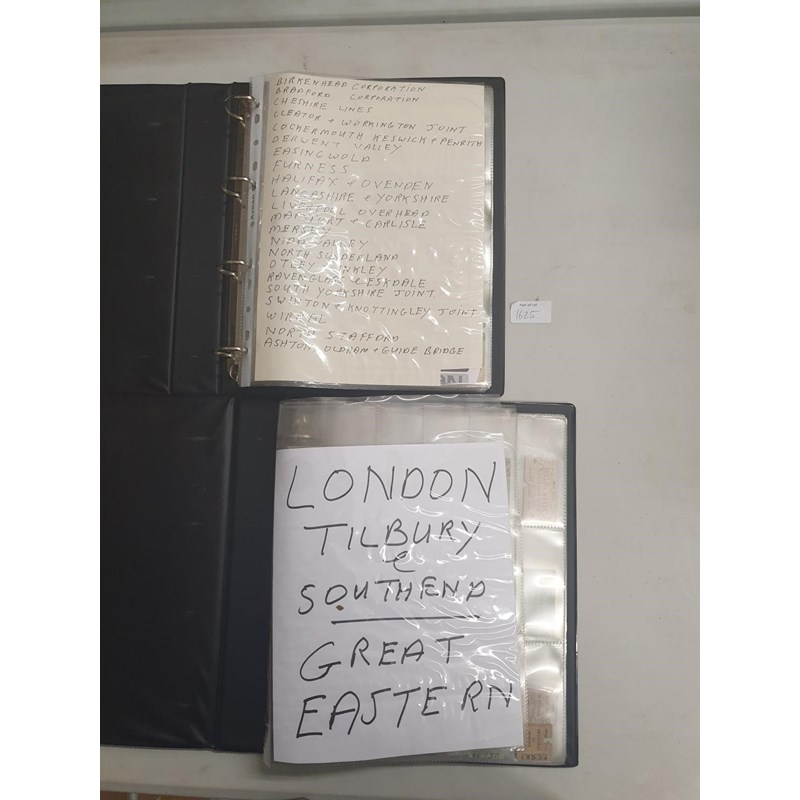 BIRKENHEAD CORPORATION
BRADFORD CORPORATION
CHESHIRE LINES
CLEATOR + WORKINGTON JOINT
COCKERMOUTH KESWICK + PENRITH
DERWENT VALLEY
EASINGWOLD
FURNESS
HALIFAX + OVENDEN
LANCASHIRE + YORKSHIRE
LIVERPOOL OVERHEAD
MARYPORT + CARLISLE
MERSEY
NIDD VALLEY
NORTH SUNDERLAND
OTLEY + INKLEY
RAVENGLASS + ESKDALE
SOUTH YORKSHIRE JOINT
SWINTON + KNOTTINGLEY JOINT
WIRRAL
NORTH STAFFORD
ASHTON OLDHAM + GUIDE BRIDGE
1625
LONDON
TILBURY
&
SOUTHEND
GREAT
EASTERN